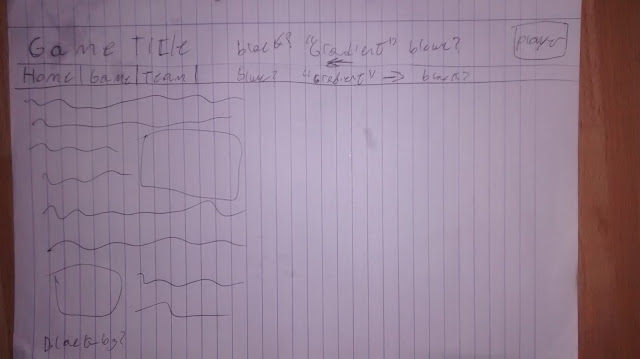 Game Title black? "Gradient" blowe? player
Home | Game | Team | blowe? "Gradient" → black?
Black bg?